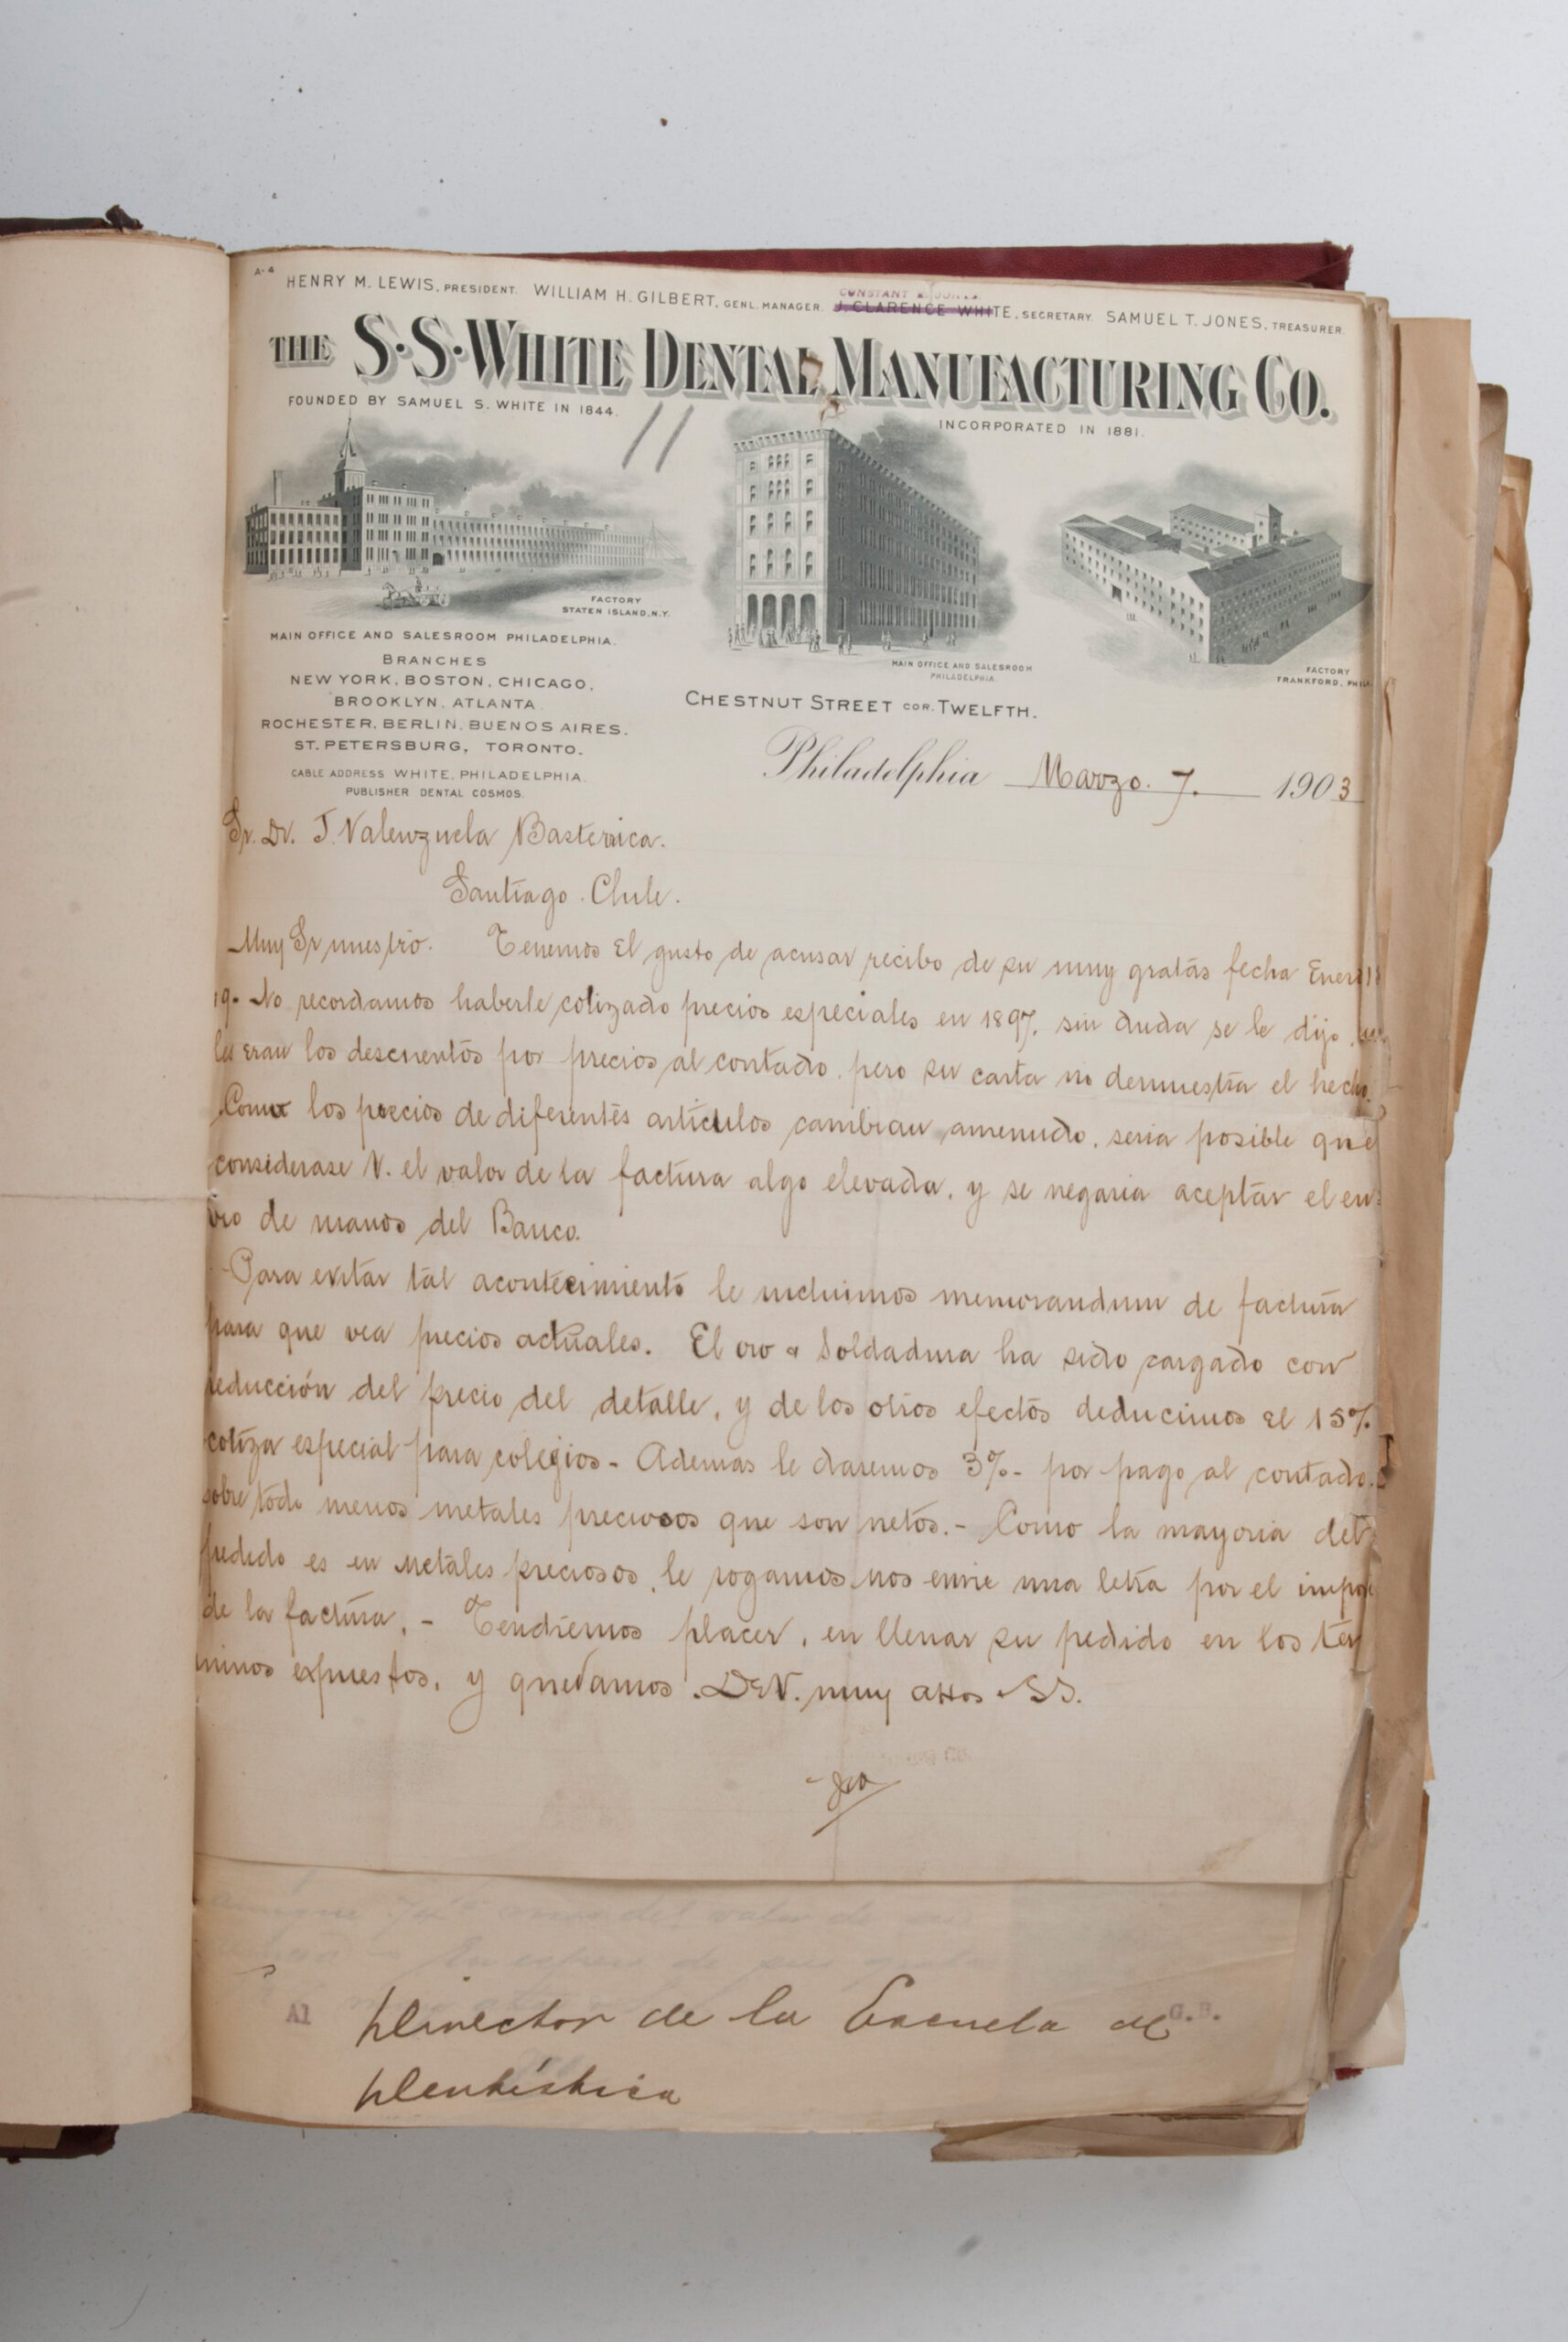 A-4 HENRY M. LEWIS, PRESIDENT. WILLIAM H. GILBERT, GENL. MANAGER. J. CLARENCE WHITE, SECRETARY. SAMUEL T. JONES, TREASURER.
CONSTANT
THE S.S. WHITE DENTAL MANUFACTURING CO.
FOUNDED BY SAMUEL S. WHITE IN 1844.
INCORPORATED IN 1881.
11
FACTORY
STATEN ISLAND, N.Y.
MAIN OFFICE AND SALESROOM
PHILADELPHIA.
FACTORY
FRANKFORD, PHILA
MAIN OFFICE AND SALESROOM PHILADELPHIA.
BRANCHES
NEW YORK, BOSTON, CHICAGO,
BROOKLYN, ATLANTA
ROCHESTER, BERLIN, BUENOS AIRES.
ST. PETERSBURG, TORONTO.
CABLE ADDRESS WHITE, PHILADELPHIA.
PUBLISHER DENTAL COSMOS.
CHESTNUT STREET COR. TWELFTH.
Philadelphia Marzo. 7. 1903
Sr. Dr. J. Valenzuela Basterrica.
Santiago. Chile.
Muy Sr nuestro. Tenemos el gusto de acusar recibo de su muy gratas fecha Enero
19. No recordamos haberle cotizado precios especiales en 1897. sin duda se le dijo
les eran los descuentos por precios al contado. pero su carta no demuestra el hecho.
Como los precios de diferentes articulos cambian amenudo. seria posible que
considerase V. el valor de la factura algo elevada, y se negaria aceptar el en-
vio de manos del Banco.
Para evitar tal acontecimiento le incluimos memorandum de factura
para que vea precios actuales. El oro & Soldadura ha sido cargado con
reducción del precio del detalle, y de los otros efectos deducimos el 15%
cotiza especial para colegios - Ademas le daremos 3% - por pago al contado.
sobre todo menos metales preciosos que son netos. - Como la mayoria del
pedido es en metales preciosos, le rogamos nos envie una letra por el impor
de la factura. - Tendremos placer, en llenar su pedido en los ter
minos expuestos, y quedamos. De V. muy attos SS.
Al Director de la Escuela de G.B.
Dentística